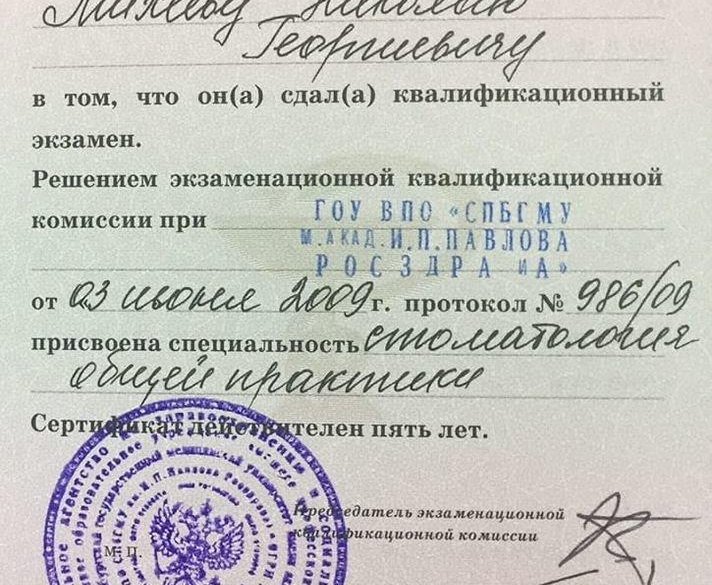 Георгиевичу
в том, что он(а) сдал(а) квалификационный
экзамен.
Решением экзаменационной квалификационной
комиссии при ГОУ ВПО «СПБГМУ
М. АКАД. И.П. ПАВЛОВА
РОСЗДРА ИА»
от 03 июня 2009г. протокол № 986/09
присвоена специальность стоматология
общей практики
Сертификат действителен пять лет.
Председатель экзаменационной
квалификационной комиссии
М. П.